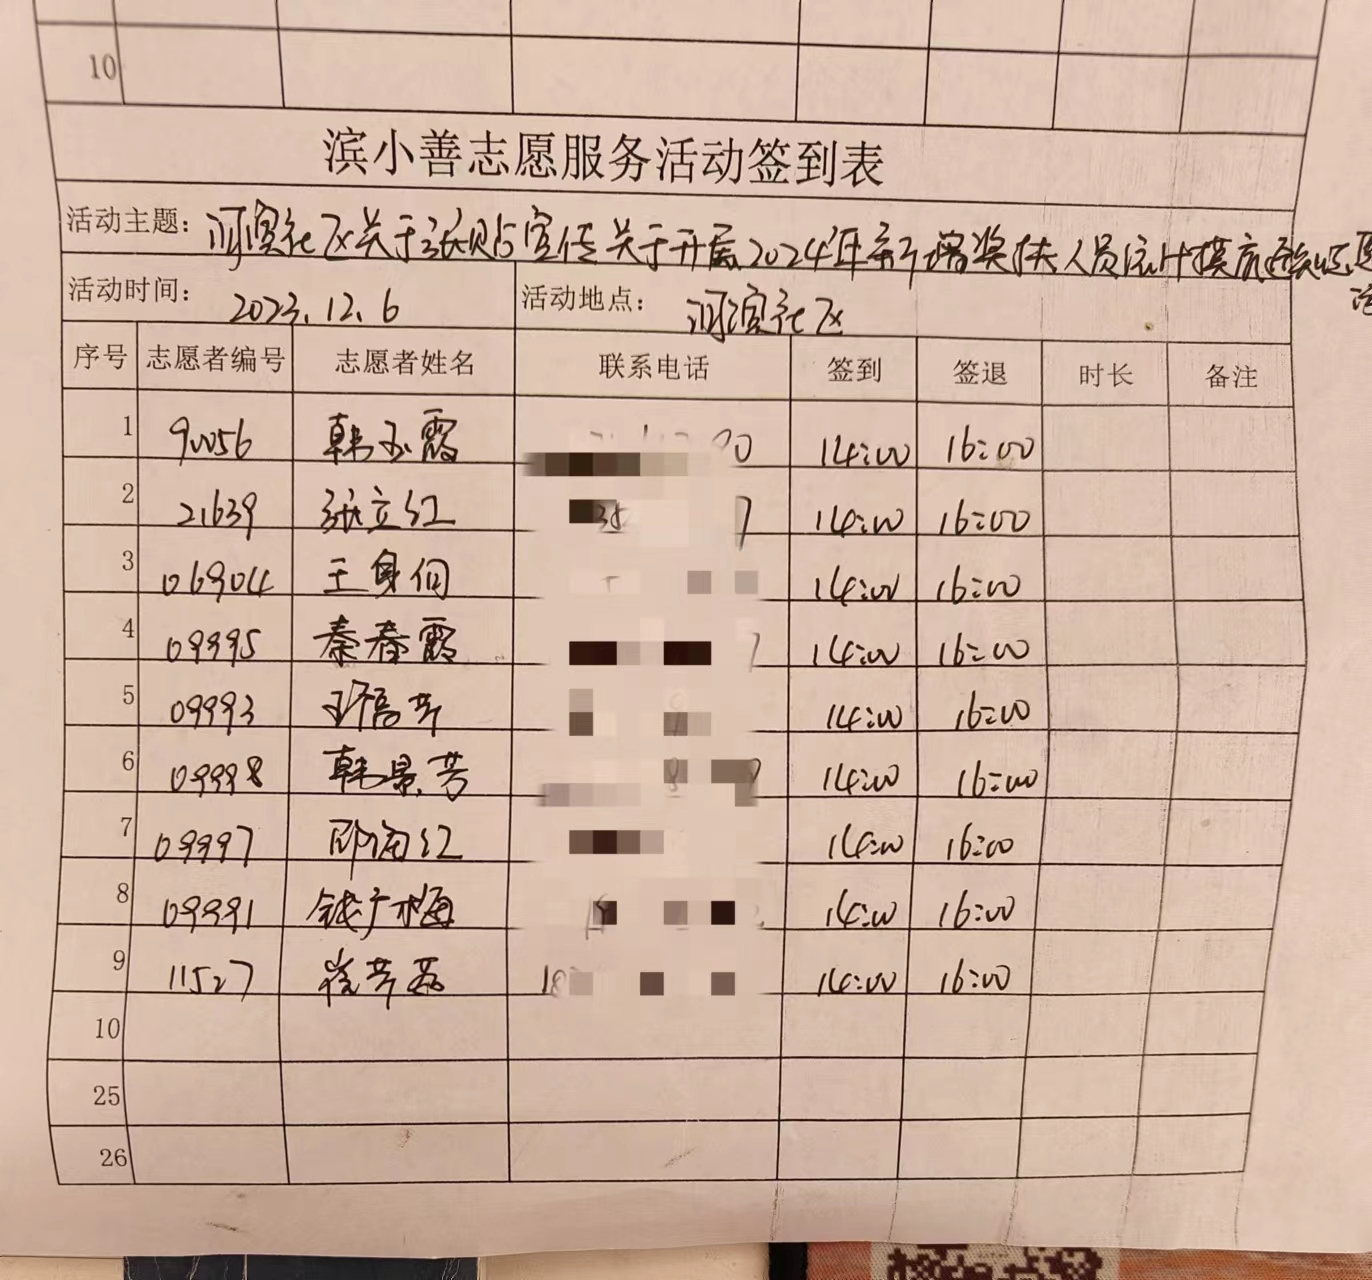 10
滨小善志愿服务活动签到表
活动主题： 河滨社区关于张贴宣传关于开展2024年新增奖扶人员统计摸底通知的
活动时间： 2023.12.6 活动地点： 河滨社区
序号 志愿者编号 志愿者姓名 联系电话 签到 签退 时长 备注
1 90056 韩玉霞 14:00 16:00
2 21639 张立红 14:00 16:00
3 06904 王 14:00 16:00
4 09995 秦春霞 14:00 16:00
5 09993 14:00 16:00
6 09998 韩景芳 14:00 16:00
7 09997 邵海红 14:00 16:00
8 09991 钱广梅 14:00 16:00
9 11527 14:00 16:00
10
25
26